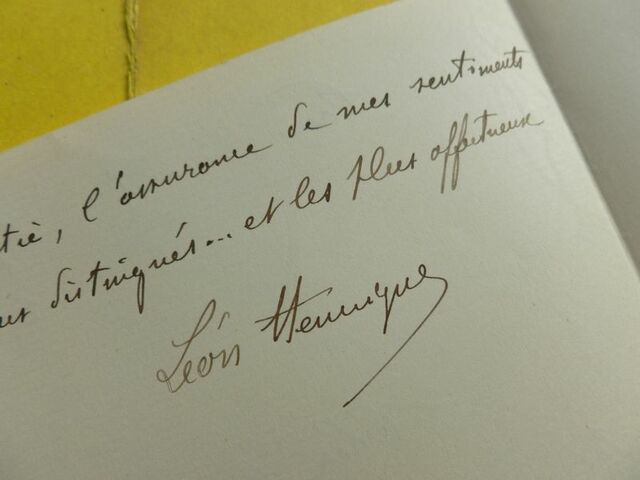 tiè, l'assurance de mes sentiments
distingués... et les plus affectueux
Léon Hennique